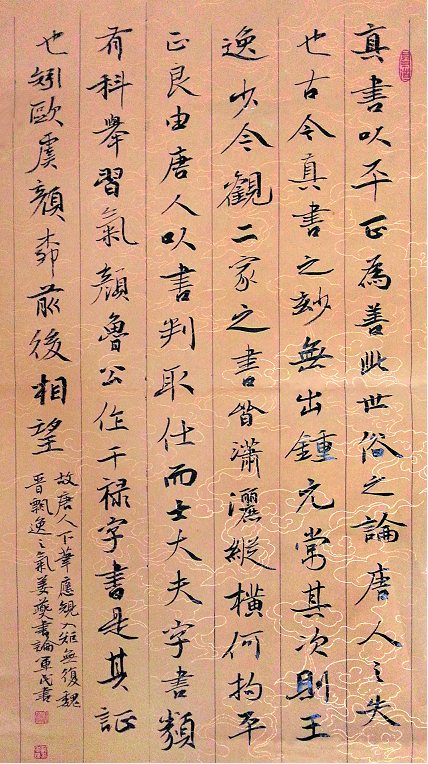 真書以平正為善此世俗之論唐人之失
也古今真書之妙無出鍾元常其次則王
逸少今觀二家之書皆瀟灑縱橫何拘平
正良由唐人以書判取仕而士大夫字書類
有科舉習氣顏魯公作干祿字書是其証
也矧歐虞顏柳前後相望
故唐人下筆應規入矩無復魏
晉飄逸之氣姜夔書論軍民書